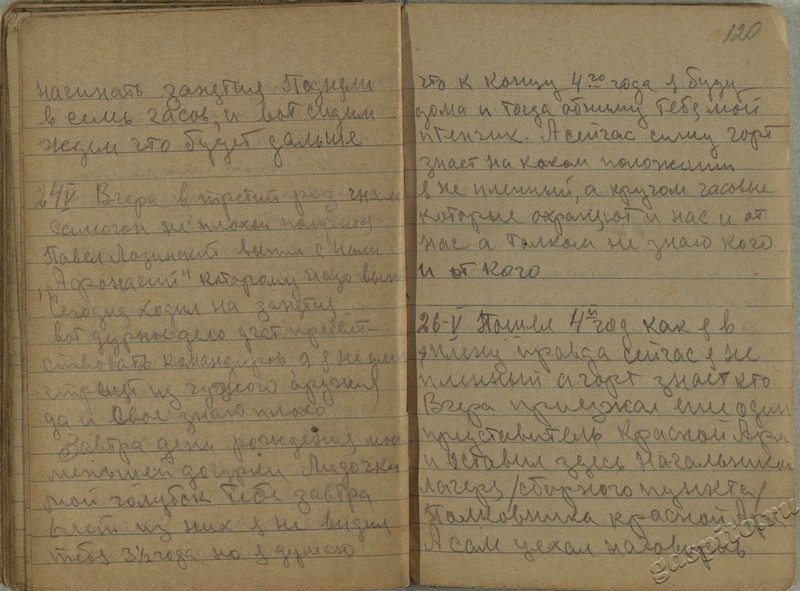 начинать занятия Подняли
в семь часов, и вот сидим
ждем что будет дальше
24/V Вчера в третий раз гнали
самогон не плохой получился
Павел Лозинский выпил с нами
которому надо
Сегодня ходил на занятия
вот дурное дело учат привет-
ствовать командиров, а я не умею
из чужого оружия
да и свое знаю плохо
Завтра день рождения моей
меньшей дочурки Лидочки
мой голубок тебе завтра
лет из них я не видел
тебя 3½ года но я думаю
120
что к концу 4го года я буду
дома и тогда обниму тебя мой
птенчик. А сейчас сижу чорт
знает на каком положении
я не пленный, а кругом часовые
которые охраняют и нас и от
нас а толком не знаю кого
и от кого
26-V Пошел 4й год как я в
плену правда сейчас я не
пленный а чорт знает кто
Вчера приезжал еще один
представитель Красной Арм
и оставил здесь Начальника
лагеря /сборного пункта/
Полковника красной Ар
А сам уехал наговорив